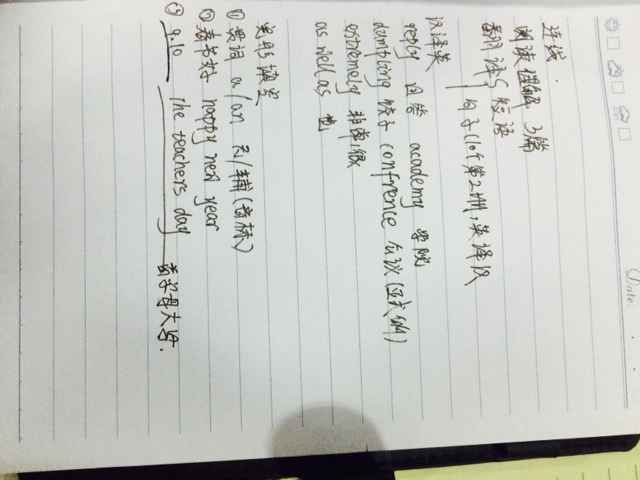 Date
连线.
阅读理解 3篇
翻译 短语
句子(10个第2册,英译汉
汉译英
repcy 回答 academy 学院
dumpling 饺子 conference 会议(正式的)
extremely 非常,很
as well as 也
填空
① 冠词 a/an 元/辅(音标)
② 春节好 happy new year
③ 9.10 the teachers day 首字母大写.